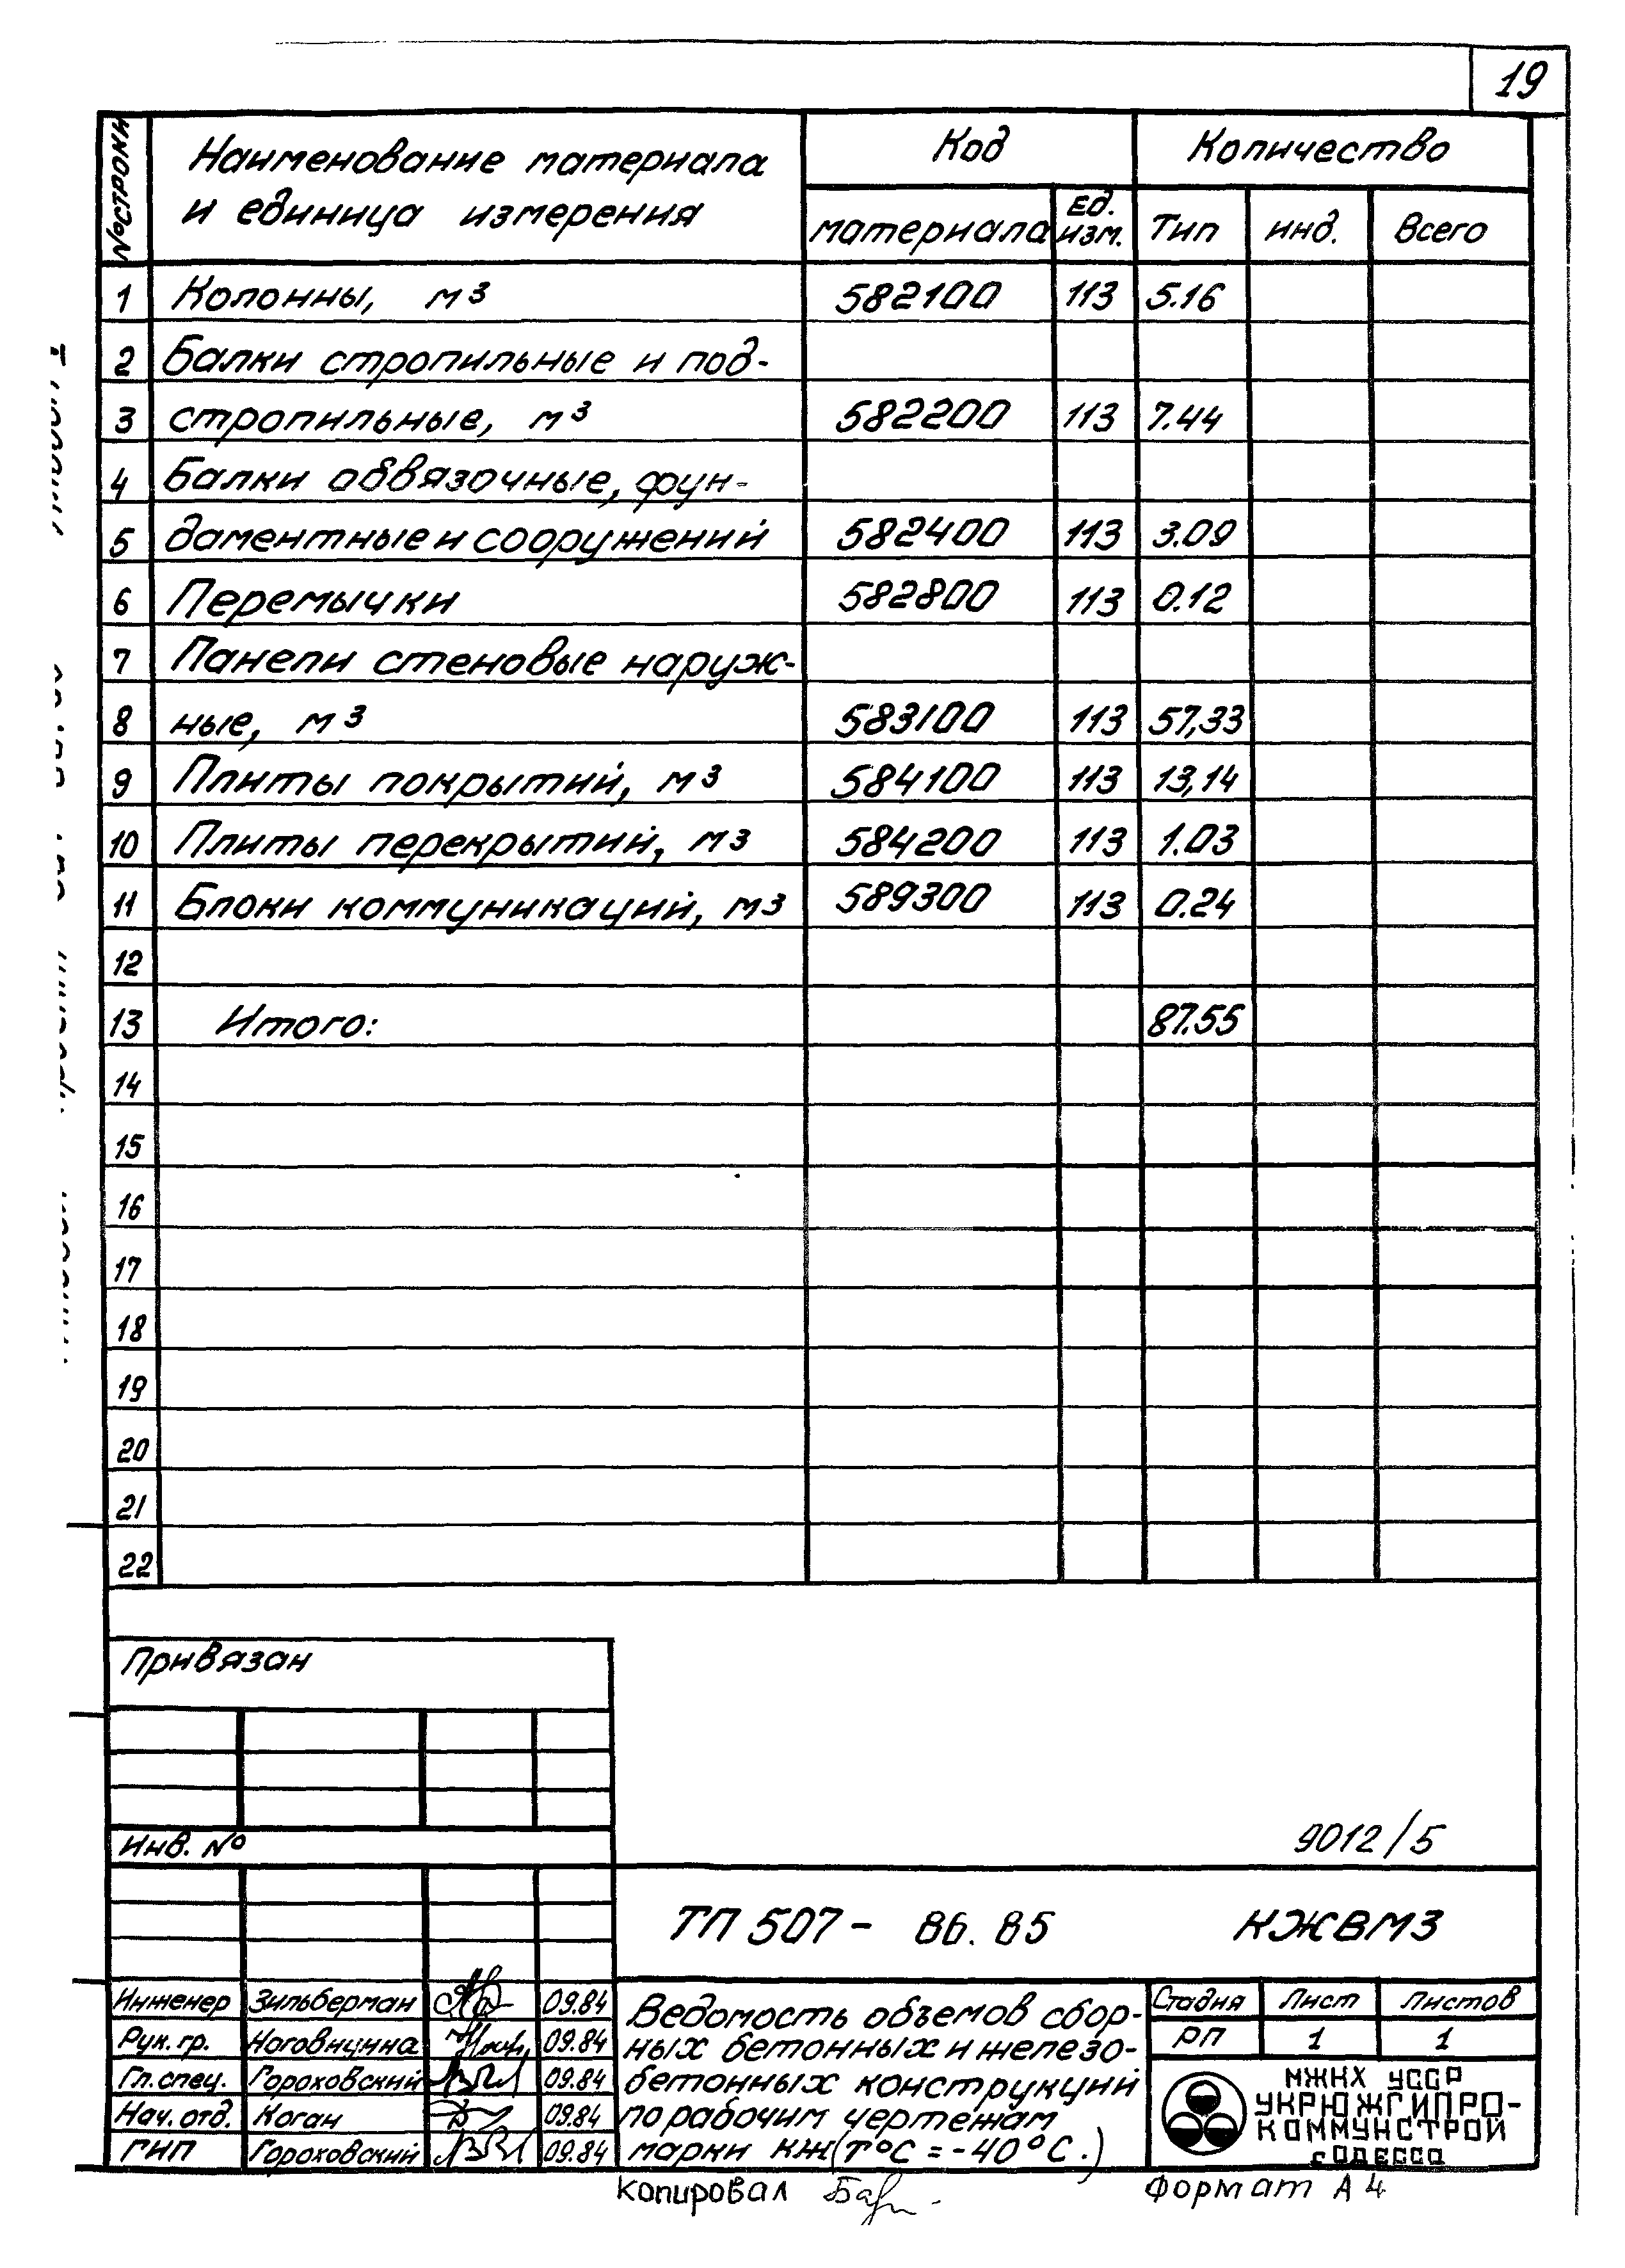 19
№ строки
Наименование материала
и единица измерения
Код
Количество
материала
Ед.
изм.
Тип
инд.
Всего
1 Колонны, м3 582100 113 5.16
2 Балки стропильные и под-
3 стропильные, м3 582200 113 7.44
4 Балки обвязочные, фун-
5 даментные и сооружений 582400 113 3.09
6 Перемычки 582800 113 0.12
7 Панели стеновые наруж-
8 ные, м3 583100 113 57,33
9 Плиты покрытий, м3 584100 113 13,14
10 Плиты перекрытий, м3 584200 113 1.03
11 Блоки коммуникаций, м3 589300 113 0.24
12
13 Итого: 87.55
14
15
16
17
18
19
20
21
22
Привязан
Инв. №
9012/5
ТП 507- 86.85 КЖВМ3
Инженер Зильберман 09.84
Рук. гр. Ноговицина 09.84
Гл. спец. Гороховский 09.84
Нач. отд. Коган 09.84
ГИП Гороховский 09.84
Ведомость объемов сбор-
ных бетонных и железо-
бетонных конструкций
по рабочим чертежам
марки КЖ (Т°С = -40°С.)
Стадия Лист Листов
РП 1 1
МЖКХ УССР
УКРЮЖГИПРО-
КОММУНСТРОЙ
г. ОДЕССА
Копировал
Формат А4